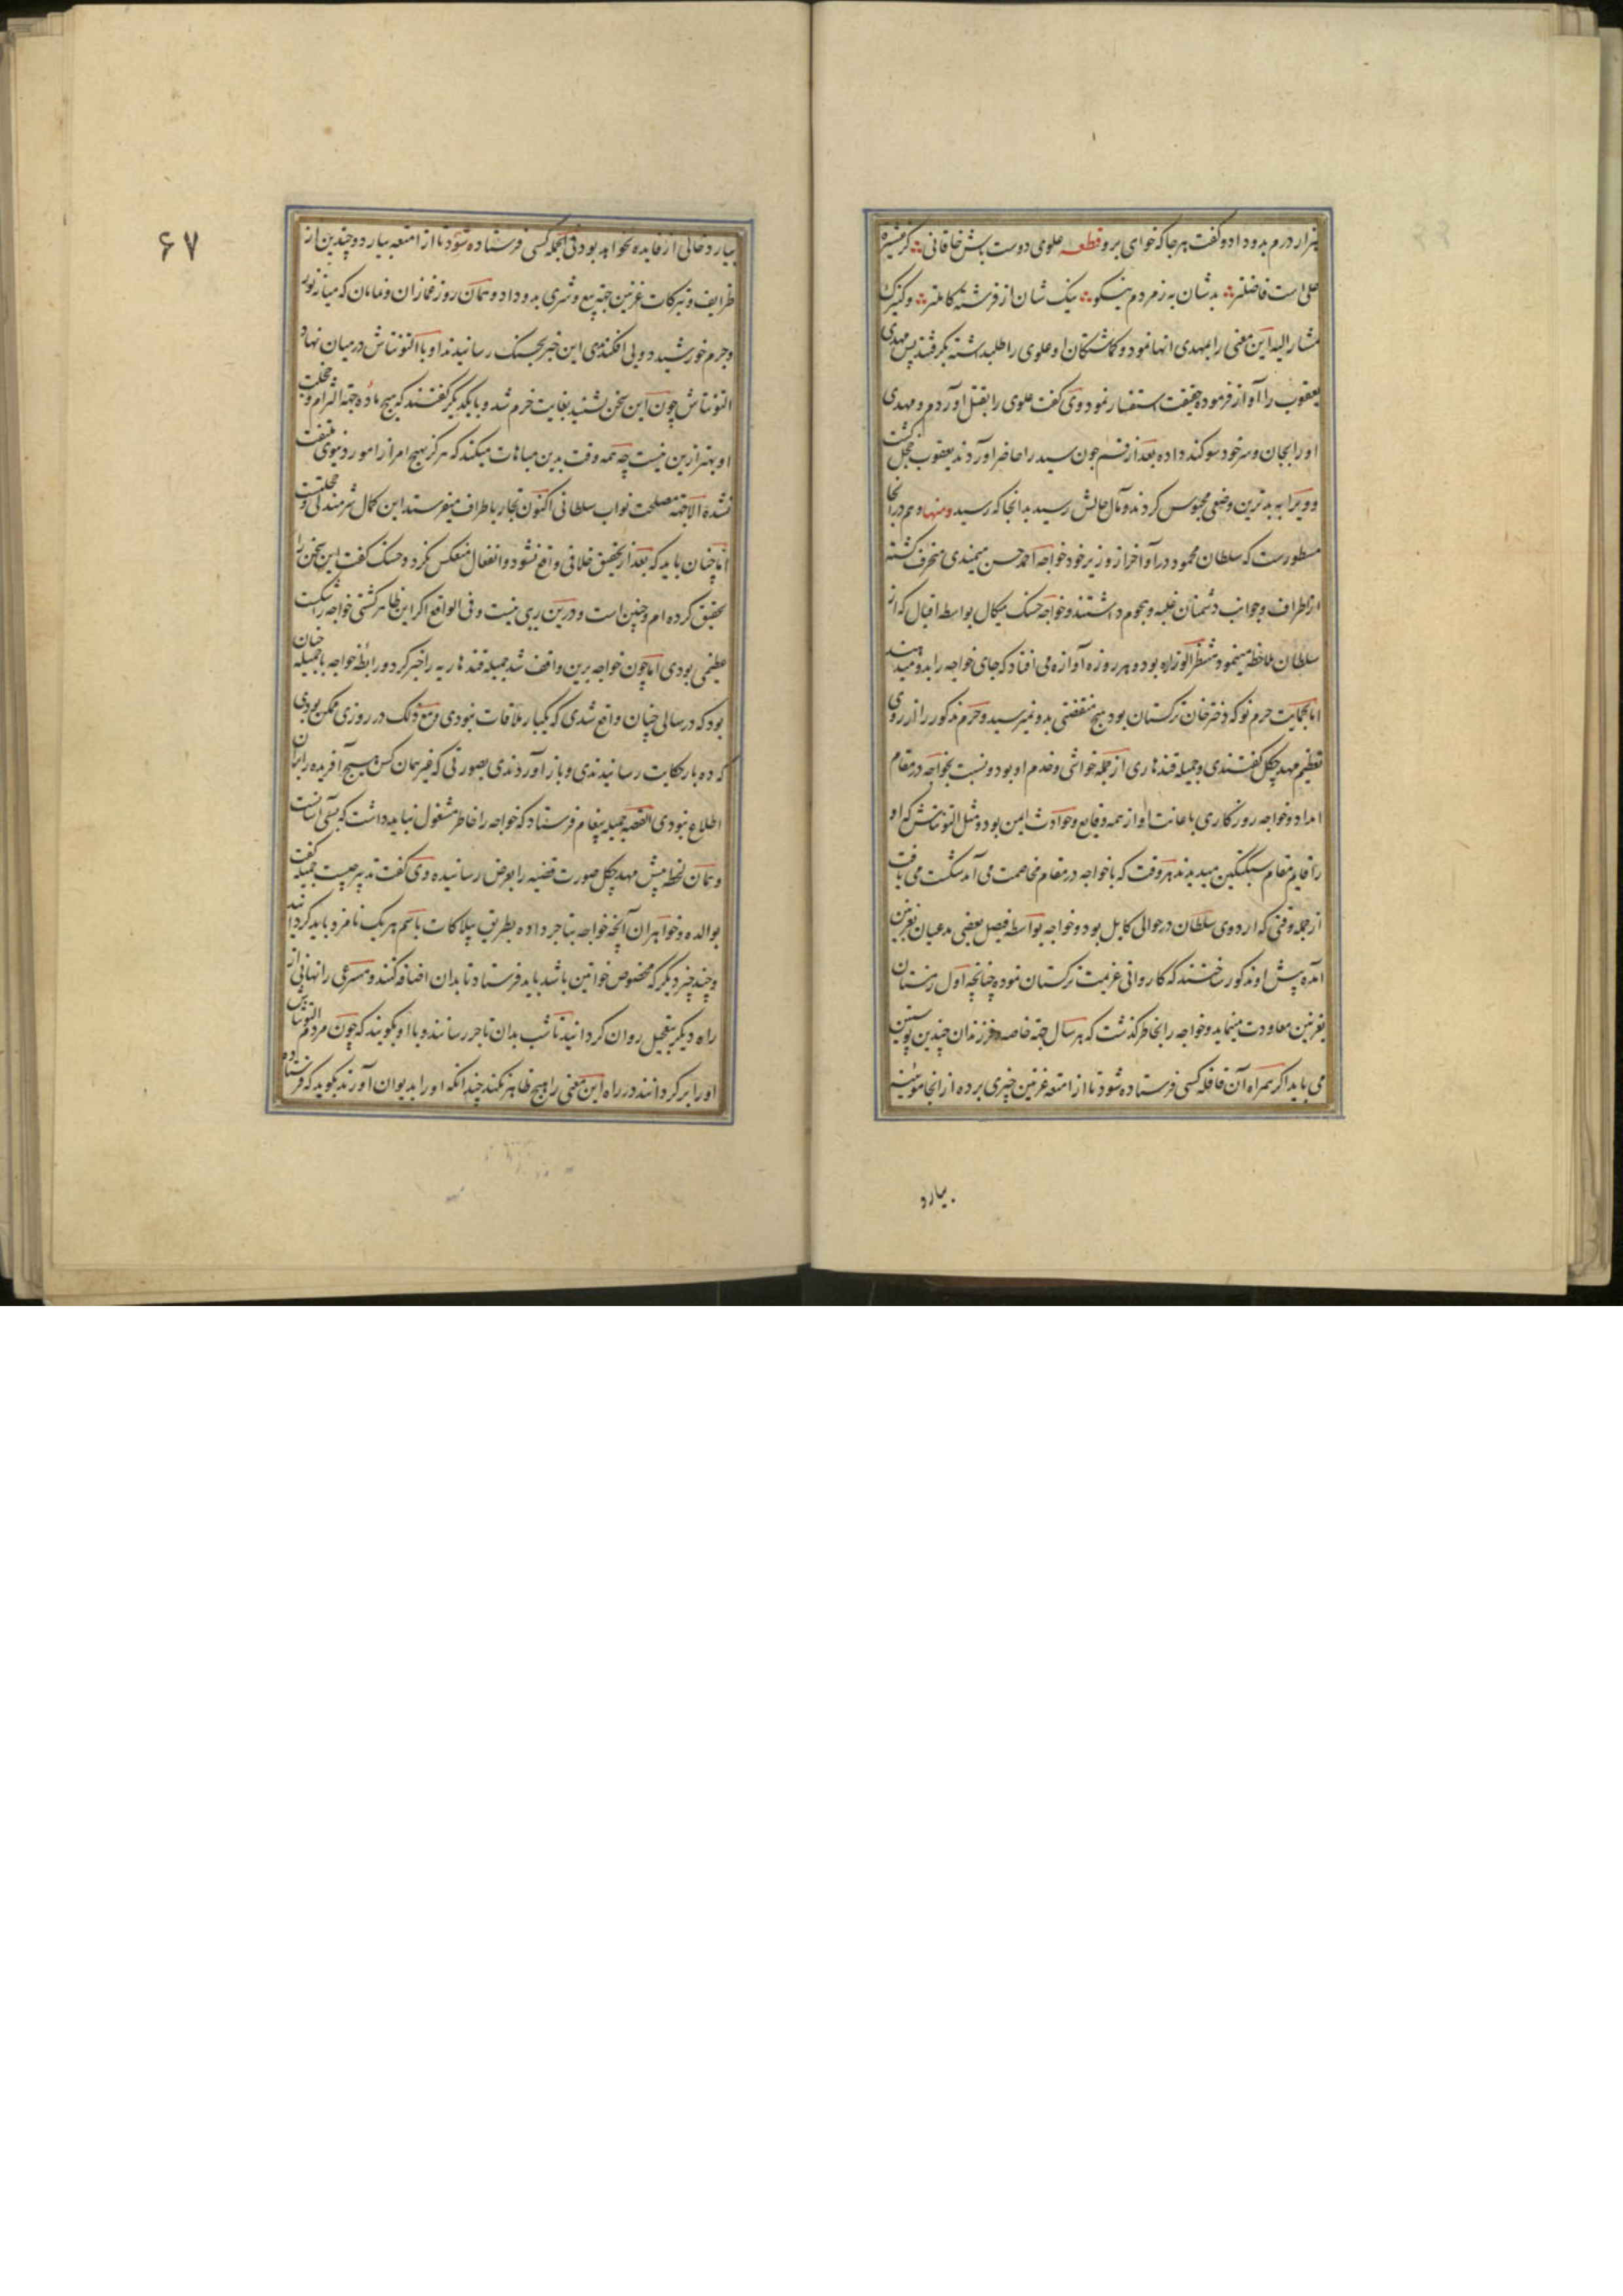 هزار درم بدو داد و گفت هر جا که خواهی برو قطعه علوی دوست باش خاقانی کز عشیره
علی است فاضلتر بد شان به ز مردم نیکو نیک شان از فرشته کاملتر و کنیزک
مشار الیه این معنی را بمهدی انها نمود و گماشتگان او علوی را طلبداشته بگرفتند پس مهدی
یعقوب را آواز فرموده حقیقت استفسار نمود وی گفت علوی را بقتل آوردم و مهدی
او را بجان و سر خود سوگند داده بعد از قسم چون سید را حاضر آوردند یعقوب خجل گشت
و ویرا به بدترین وضعی محبوس کردند و مآل حالش رسید بدانجا که رسید و منها و هم در آنجا
مسطورست که سلطان محمود در اواخر از وزیر خود خواجه احمد حسن میمندی منحرف گشته
از اطراف و جوانب دشمنان غلبه و هجوم داشتند و خواجه حسنک میکال بواسطه اقبال که از
سلطان ملاحظه مینمود منتظر الوزاره بود و هر روزه آوازه می افتاد که جای خواجه را بدو میدهند
اما بحمایت حرم نو که دختر خان ترکستان بود هیچ منقصتی بدو نمیرسید و حرم مذکور را از روی
تعظیم مهد چگل گفتندی و جمیله قندهاری از جمله خواشی و خدم او بود و نسبت بخواجه در مقام
امداد و خواجه روزگاری باعانت او از همه وقایع و حوادث ایمن بود و مثل التونتاش که او
را قایم مقام سبکتگین میدیدند هر وقت که با خواجه در مقام مخاصمت می آمد شکست می یافت
از جمله وقتی که اردوی سلطان در حوالی کابل بود و خواجه بواسطه فیصل بعضی مدعیان بغزنین
آمده پیش او مذکور ساختند که کاروانی عزیمت ترکستان نموده چنانچه اول زمستان
بغزنین معاودت مینماید و خواجه را بخاطر گذشت که هر سال جهة خاصه و فرزندان چندین پوستین
می باید اگر همراه آن قافله کسی فرستاده شود تا از امتعه غزنین چیزی برده از آنجا موئینه
بیارد
۶۷
بیارد خالی از فایده نخواهد بود فی الجمله کسی فرستاده شود تا از امتعه بیارد و چندین از
ظرایف و تبرکات غزنین جهة بیع و شری بدو داد و همان روز غمازان و نمامان که میانه نور
و جرم خورشید دویی افکندندی این خبر بحسنک رسانیدند او با التونتاش در میان نهاد
التونتاش چون این سخن بشنید بغایت خرم شد و با یکدیگر گفتند که هیچ ماده جهة الزام و خجلت
او بهتر ازین نیست چه همه وقت بدین مباهات میکند که هرگز بهیچ امر از امور دنیوی ملتفت
نشده الا جهة مصلحت نواب سلطانی اکنون تجار باطراف میفرستد این کمال شرمندگی و خجلتست
اما چنان باید که بعد از تحقیق خلافی واقع نشود و انفعال منعکس نگردد و حسنک گفت این سخن را
تحقیق کرده ام و چنین است و درین ریبی نیست و فی الواقع اگر این ظاهر گشتی خواجه را شکست
عظیمی بودی اما چون خواجه برین واقف شد جمیله قندهاریه را خبر کرد و رابطه خواجه با جمیله چنان
بود که در سالی چنان واقع شدی که یکبار ملاقات نبودی و مع ذلک در روزی ممکن بودی
که ده بار حکایت رسانیدندی و باز آوردندی بصورتی که غیر همان کس هیچ آفریده را بران
اطلاع نبودی القصه جمیله پیغام فرستاد که خواجه را خاطر مشغول نباید داشت که بسی آسانست
و همان لحظه پیش مهد چگل صورت قضیه را بعرض رسانیده وی گفت تدبیر چیست جمیله گفت
بوالده و خواهران آنچه خواجه بتاجر داده بطریق بیلاکات باسم هر یک نامزد باید کردانید
و چند چیز دیگر که مخصوص خواتین باشد باید فرستاد تا بدان اضافه کنند و مسرعی را نهانی از
راه دیگر بتعجیل روان کردانید تا شب بدان تاجر رسانند و با او بگویند که چون مردم التونتاش
او را بر کردانند در راه این معنی را هیچ ظاهر نکند چندانکه او را بدیوان آورند بگوید که فرستاده